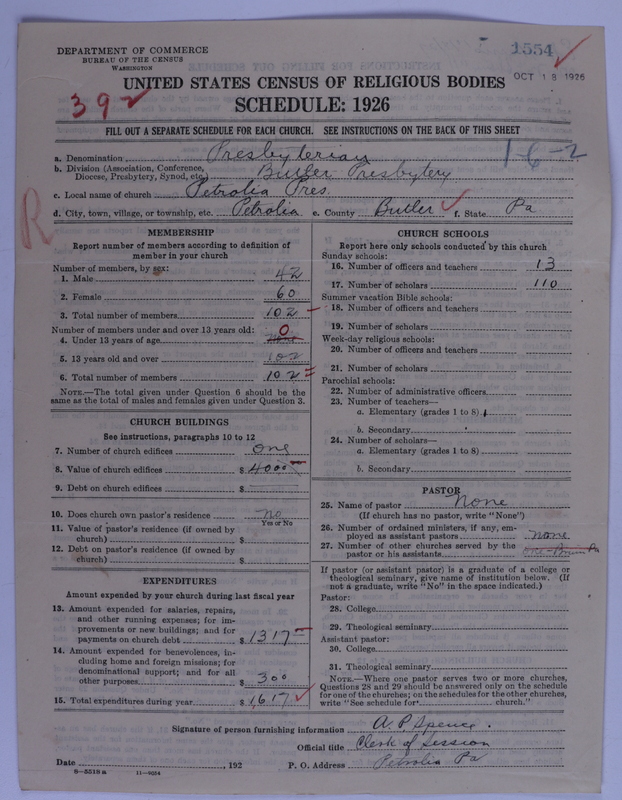 DEPARTMENT OF COMMERCE
BUREAU OF THE CENSUS
WASHINGTON
1554
OCT 18 1926
UNITED STATES CENSUS OF RELIGIOUS BODIES
392
SCHEDULE: 1926
FILL OUT A SEPARATE SCHEDULE FOR EACH CHURCH. SEE INSTRUCTIONS ON THE BACK OF THIS SHEET
1-6-2
a. Denomination Presbyterian
b. Division (Association, Conference, Diocese, Presbytery, Synod, etc.) Butler Presbytery
c. Local name of church Petrolia Pres.
d. City, town, village, or township, etc. Petrolia e. County Butler f. State Pa
R
MEMBERSHIP
Report number of members according to definition of
member in your church
Number of members, by sex:
1. Male 42
2. Female 60
3. Total number of members 102
Number of members under and over 13 years old: 0
4. Under 13 years of age none
5. 13 years old and over 102
6. Total number of members 102
NOTE.—The total given under Question 6 should be
same as the total of males and females given under Question 3.
CHURCH BUILDINGS
See instructions, paragraphs 10 to 12
7. Number of church edifices one
8. Value of church edifices $ 4000
9. Debt on church edifices $
10. Does church own pastor's residence no
Yes or No
11. Value of pastor's residence (if owned by
church) $
12. Debt on pastor's residence (if owned by
church) $
EXPENDITURES
Amount expended by your church during last fiscal year
13. Amount expended for salaries, repairs,
and other running expenses; for im-
provements or new buildings; and for
payments on church debt $ 1317
14. Amount expended for benevolences, in-
cluding home and foreign missions; for
denominational support; and for all
other purposes $ 300
15. Total expenditures during year $ 1,617
CHURCH SCHOOLS
Report here only schools conducted by this church
Sunday schools:
16. Number of officers and teachers 13
17. Number of scholars 110
Summer vacation Bible schools:
18. Number of officers and teachers
19. Number of scholars
Week-day religious schools:
20. Number of officers and teachers
21. Number of scholars
Parochial schools:
22. Number of administrative officers
23. Number of teachers—
a. Elementary (grades 1 to 8)
b. Secondary
24. Number of scholars—
a. Elementary (grades 1 to 8)
b. Secondary
PASTOR
25. Name of pastor None
(If church has no pastor, write "None")
26. Number of ordained ministers, if any, em-
ployed as assistant pastors none
27. Number of other churches served by the
pastor or his assistants one
If pastor (or assistant pastor) is a graduate of a college or
theological seminary, give name of institution below. (If
not a graduate, write "No" in the space indicated.)
Pastor:
28. College
29. Theological seminary
Assistant pastor:
30. College
31. Theological seminary
NOTE.—Where one pastor serves two or more churches,
Questions 28 and 29 should be answered only on the schedule
for one of the churches; on the schedules for the other churches,
write "See schedule for church."
Signature of person furnishing information A. P. Spence.
Official title Clerk of Session
Date , 192 P. O. Address Petrolia Pa
8—5518a 11—9024